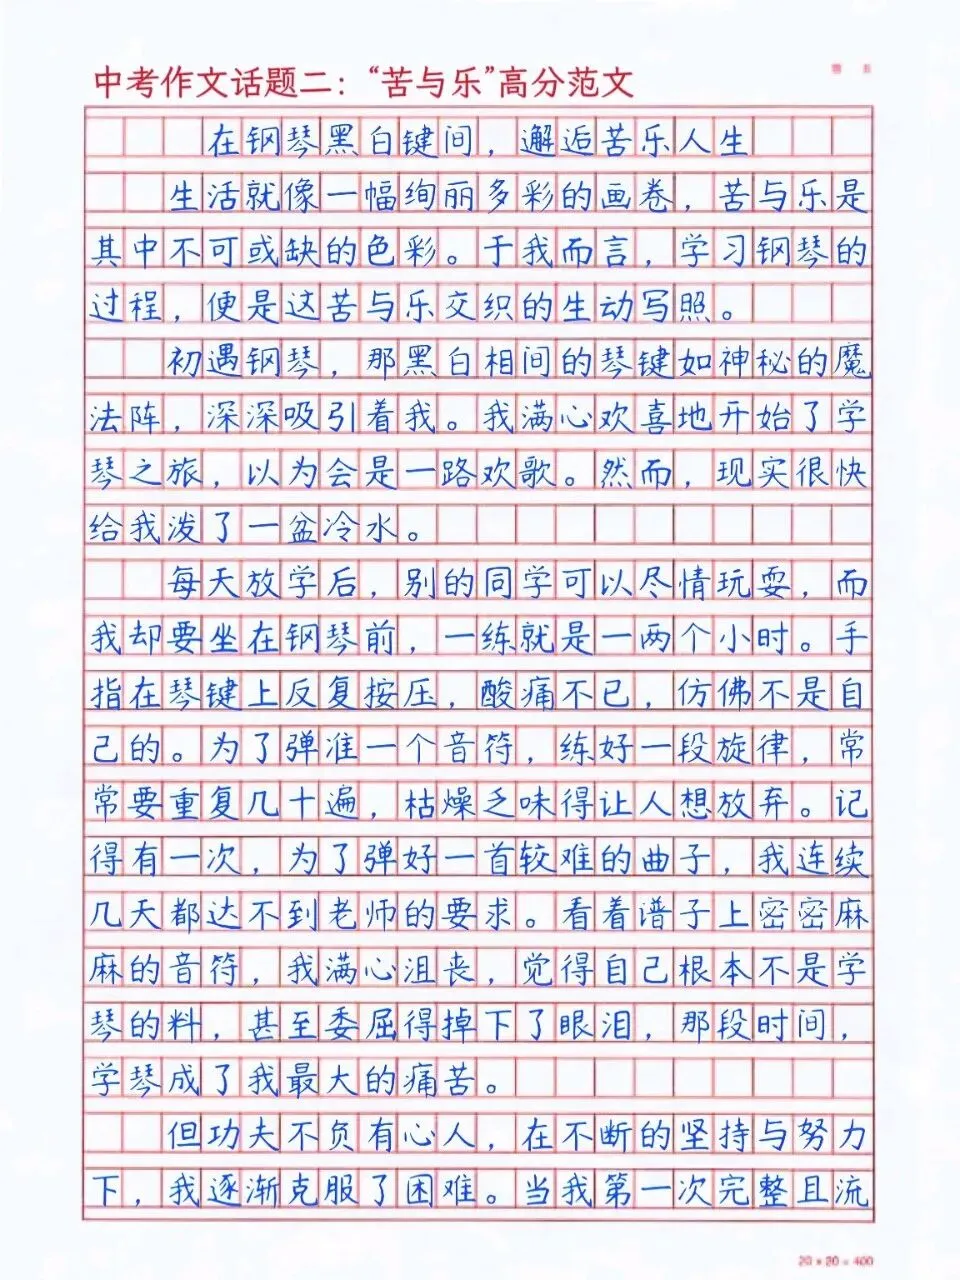 中考作文话题二：“苦与乐”高分范文
在钢琴黑白键间，邂逅苦乐人生
生活就像一幅绚丽多彩的画卷，苦与乐是
其中不可或缺的色彩。于我而言，学习钢琴的
过程，便是这苦与乐交织的生动写照。
初遇钢琴，那黑白相间的琴键如神秘的魔
法阵，深深吸引着我。我满心欢喜地开始了学
琴之旅，以为会是一路欢歌。然而，现实很快
给我泼了一盆冷水。
每天放学后，别的同学可以尽情玩耍，而
我却要坐在钢琴前，一练就是一两个小时。手
指在琴键上反复按压，酸痛不已，仿佛不是自
己的。为了弹准一个音符，练好一段旋律，常
常要重复几十遍，枯燥乏味得让人想放弃。记
得有一次，为了弹好一首较难的曲子，我连续
几天都达不到老师的要求。看着谱子上密密麻
麻的音符，我满心沮丧，觉得自己根本不是学
琴的料，甚至委屈得掉下了眼泪，那段时间，
学琴成了我最大的痛苦。
但功夫不负有心人，在不断的坚持与努力
下，我逐渐克服了困难。当我第一次完整且流
20×20=400